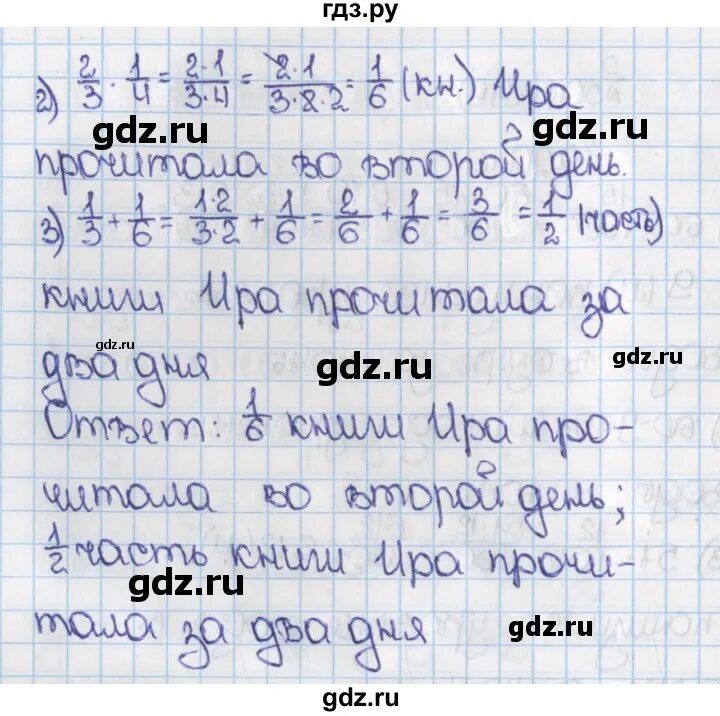 гдз.ру
2) 2/3 · 1/4 = 2·1/3·4 = 2·1/3·2·2 = 1/6 (кн.) Ира
gdz.ru gdz.ru
прочитала во второй день.
3) 1/3 + 1/6 = 1·2/3·2 + 1/6 = 2/6 + 1/6 = 3/6 = 1/2 (часть)
книги Ира прочитала за
gdz.ru
два дня
gdz.ru
Ответ: 1/6 книги Ира про-
читала во второй день;
1/2 часть книги Ира прочи-
gdz.ru
тала за два дня
gdz.ru
gdz.ru